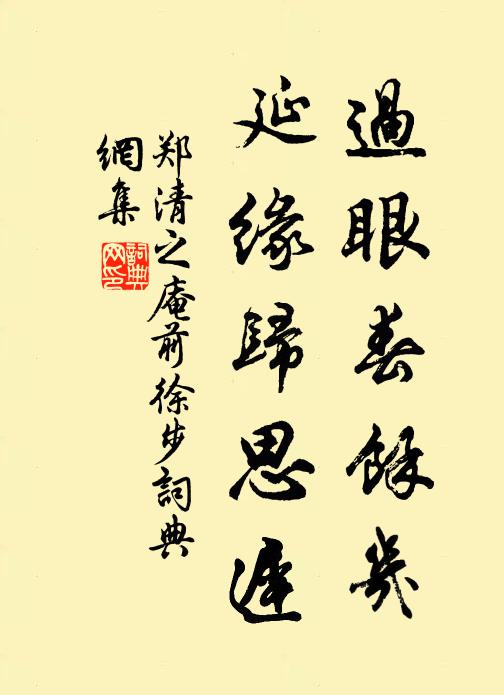 過眼春餘幾
延緣歸思遲
郑清之庵前徐步詞典
網集
詞典網印